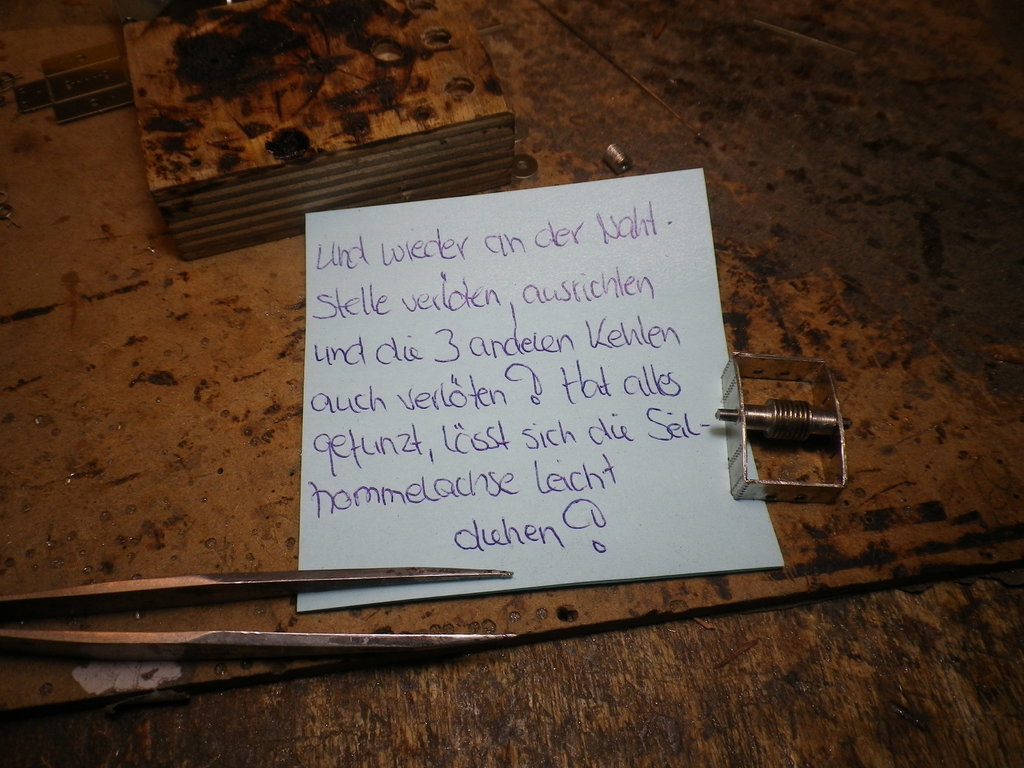 und wieder an der Naht-
stelle verlöten, ausrichten
und die 3 anderen Kehlen
auch verlöten! Hat alles
gefunzt, lässt sich die Seil-
trommelachse leicht
drehen!